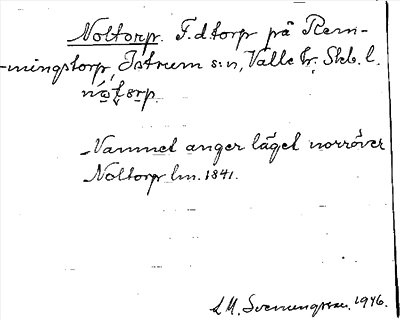 Noltorp. F.d torp på Rem-
-mingstorp, Istrum s:n, Valle hr, Skb. l.
Namnet anger läget norröver
Noltorp lm. 1841.
S.M. Svenungsson. 1946.